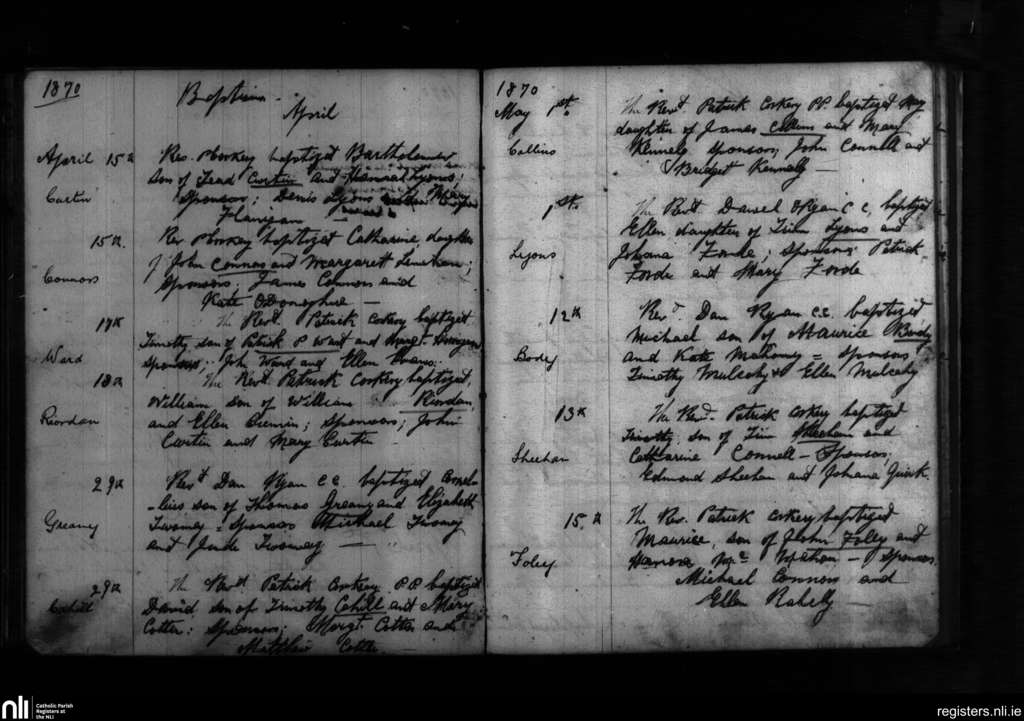 1870
Baptisms
April
April 15th Rev. P Corkery baptized Bartholomew
son of Tead Curtin and Hannah Lyons;
Curtin Sponsors; Denis Lyons Mary
Flanigan
15th. Rev P Corkery baptized Catharine, daughter
of John Connors and Margarett Lenihan;
Connors Sponsors, James Connors and
Kate O'Donoghue —
17th The Revd. Patrick Corkery baptized
Timothy son of Patrick P Ward and Margt.
Ward sponsors; John Ward and Ellen
18th The Revd Patrick Corkery baptized,
William son of William Riordan
Riordan and Ellen Cremin; Sponsors; John
Curtin and Mary Curtin
29th Revd Dan Ryan C C. baptized Corne-
-lius son of Thomas Greany and Elizabeth
Greany Twomey: Sponsors Michael Twomey
and Jude Twomey —
29th The Revd Patrick Corkery P.P. baptized
Cahill David son of Timothy Cahill and Mary
Cotter: Sponsors; Margt. Cotter and
Matthew Cotter
1870
May 1st. The Revd Patrick Corkery P.P. baptized
daughter of James Collins and Mary
Collins Kennely Sponsors, John Connell and
Bridget Kennelly —
1st. The Revd. Daniel O'Ryan C C, baptized
Ellen daughter of Tim Lyons and
Lyons Johana Forde; Sponsors, Patrick
Forde and Mary Forde
12th Revd Dan Ryan C.C. baptized
Michael son of Maurice Body
Bodey and Kate Mahoney = Sponsors
Timothy Mulcahy & Ellen Mulcahy
13th The Revd. Patrick Corkery baptized
Timothy, son of Tim Sheehan and
Sheehan Catharine Connell — Sponsors:
Edmond Sheehan and Johana Quirk.
15.th The Rev. Patrick Corkery baptized
Maurice, son of John Foley and
Foley Mc Mahon — Sponsors
Michael Connors and
Ellen Rahilly —
nli Catholic Parish
Registers at
the NLI
registers.nli.ie